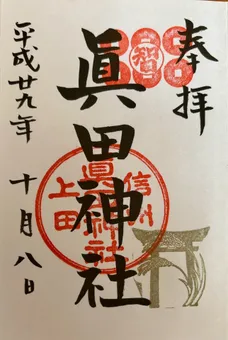 奉拝
眞田神社
信州
眞田神社
上田
平成廿九年
十月八日